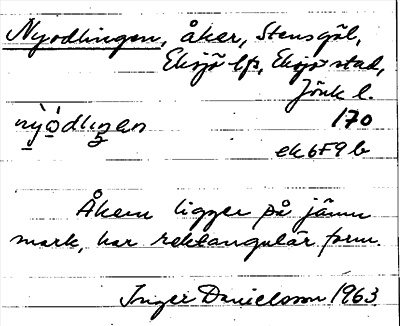 Nyodlingen, åker, Stensgöl,
Eksjö lfs, Eksjö stad,
Jönk l.
nỳódlingen 170
ek 6F9b
Åkern ligger på jämn
mark, har rektangulär form.
Inger Danielsson 1963